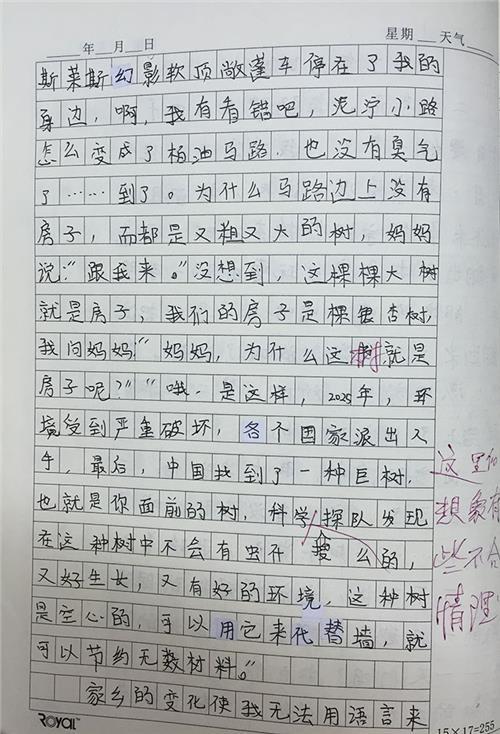 年 月 日 星期 天气
斯莱斯幻影软顶敞蓬车停在了我的
身边，啊，我有看错吧，泥泞小路
怎么变成了柏油马路．也没有臭气
了……到了。为什么马路边上没有
房子，而都是又粗又大的树，妈妈
说：“跟我来。”没想到，这棵棵大树
就是房子，我们的房子是棵银杏树，
我问妈妈：“妈妈，为什么这树就是
房子呢？”“哦．是这样，2025年，环
境受到严重破坏，各个国家派出人
手，最后，中国找到了一种巨树，
也就是你面前的树，科学探队发现
在这种树中不会有虫什么的，
又好生长，又有好的环境，这种树
是空心的，可以用它来代替墙，就
可以节约无数材料。”
家乡的变化使我无法用语言来
这里
想象有
些不合
情理
ROYAL
15×17=255